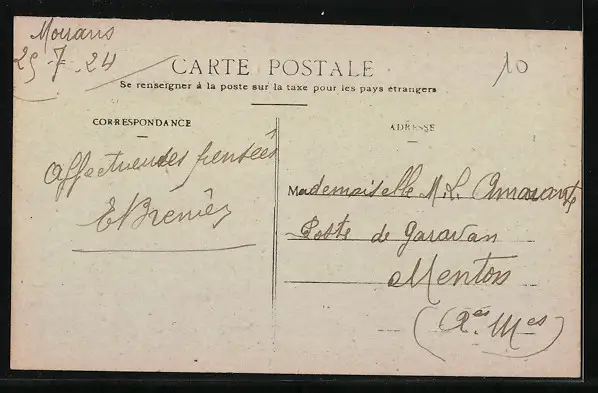 Moirans
25-7-24
10
CARTE POSTALE
Se renseigner à la poste sur la taxe pour les pays étrangers
CORRESPONDANCE
Affectueuses pensées
EBrénier
ADRESSE
Mademoiselle M.L. Amarante
Poste de Garavan
Menton
(Aes. Mes)